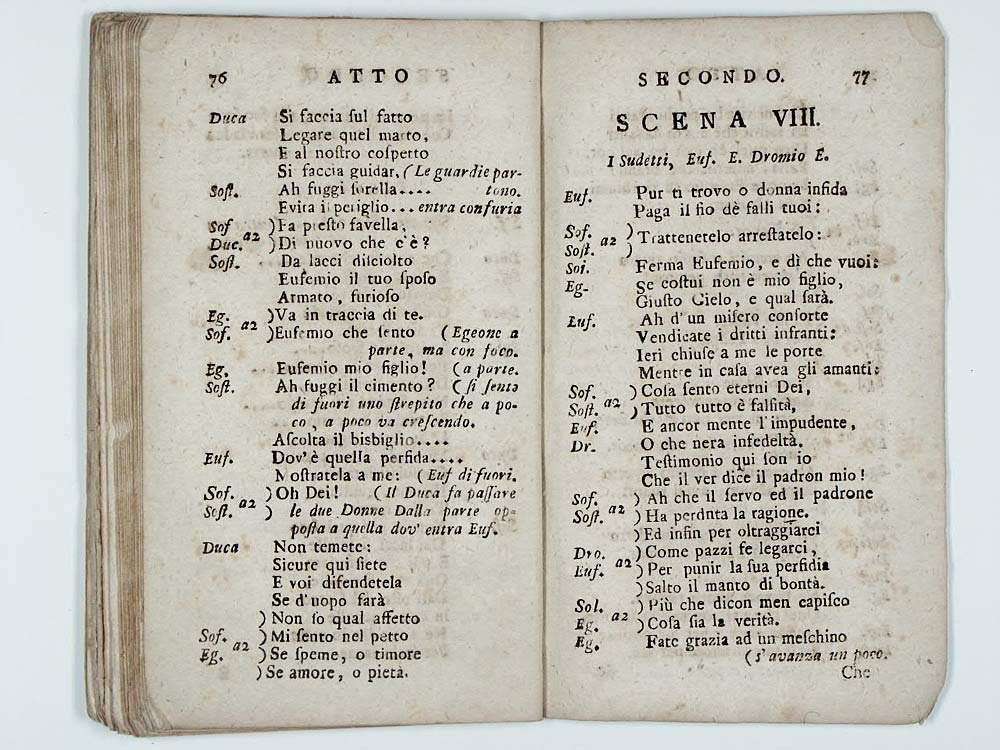 76 ATTO
Duca Si faccia ſul fatto
Legare quel matto,
E al noſtro coſpetto
Si faccia guidar. (Le guardie par-
Soſt. Ah fuggi ſorella.... tono.
Evita il periglio... entra con furia
Sof )Fa preſto favella,
Duc. a2 )Di nuovo che c'è?
Soſt. Da lacci diſciolto
Eufemio il tuo ſpoſo
Armato, furioſo
Eg. )Va in traccia di te.
Sof. a2 )Eufemio che ſento (Egeone a
parte, ma con foco.
Eg. Eufemio mio figlio! (a parte.
Soſt. Ah fuggi il cimento? (ſi ſente
di fuori uno ſtrepito che a po-
co, a poco va creſcendo.
Aſcolta il bisbiglio....
Euf. Dov'è quella perfida....
Moſtratela a me: (Euf di fuori.
Sof. )Oh Dei! (Il Duca fa paſſare
Soſt. a2 ) le due Donne Dalla parte op-
poſta a quella dov' entra Euf.
Duca Non temete:
Sicure qui ſiete
E voi difendetela
Se d'uopo farà
) Non ſo qual affetto
Sof. ) Mi ſento nel petto
Eg. a2 ) Se ſpeme, o timore
) Se amore, o pietà.
SECONDO. 77
SCENA VIII.
I Sudetti, Euf. E. Dromio E.
Euf. Pur ti trovo o donna infida
Paga il fio dè falli tuoi:
Sof. )
Soſt. a2 ) Trattenetelo arreſtatelo:
Soi. Ferma Eufemio, e dì che vuoi:
Eg. Se coſtui non è mio figlio,
Giuſto Cielo, e qual ſarà.
Euf. Ah d'un miſero conſorte
Vendicate i dritti infranti:
Ieri chiuſe a me le porte
Mentre in caſa avea gli amanti:
Sof. ) Coſa ſento eterni Dei,
Soſt. a2 ) Tutto tutto è falſità,
Euf. E ancor mente l'impudente,
Dr. O che nera infedeltà.
Teſtimonio qui ſon io
Che il ver dice il padron mio!
Sof. ) Ah che il ſervo ed il padrone
Soſt. a2 ) Ha perdnta la ragione.
)Ed infin per oltraggiarci
Dro. )Come pazzi fe legarci,
Euf. a2 )Per punir la ſua perfidia
)Salto il manto di bontà.
Sol. ) Più che dicon men capiſco
Eg. a2 ) Coſa ſia la verità.
Eg. Fate grazia ad un meſchino
(s'avanza un poco.
Che